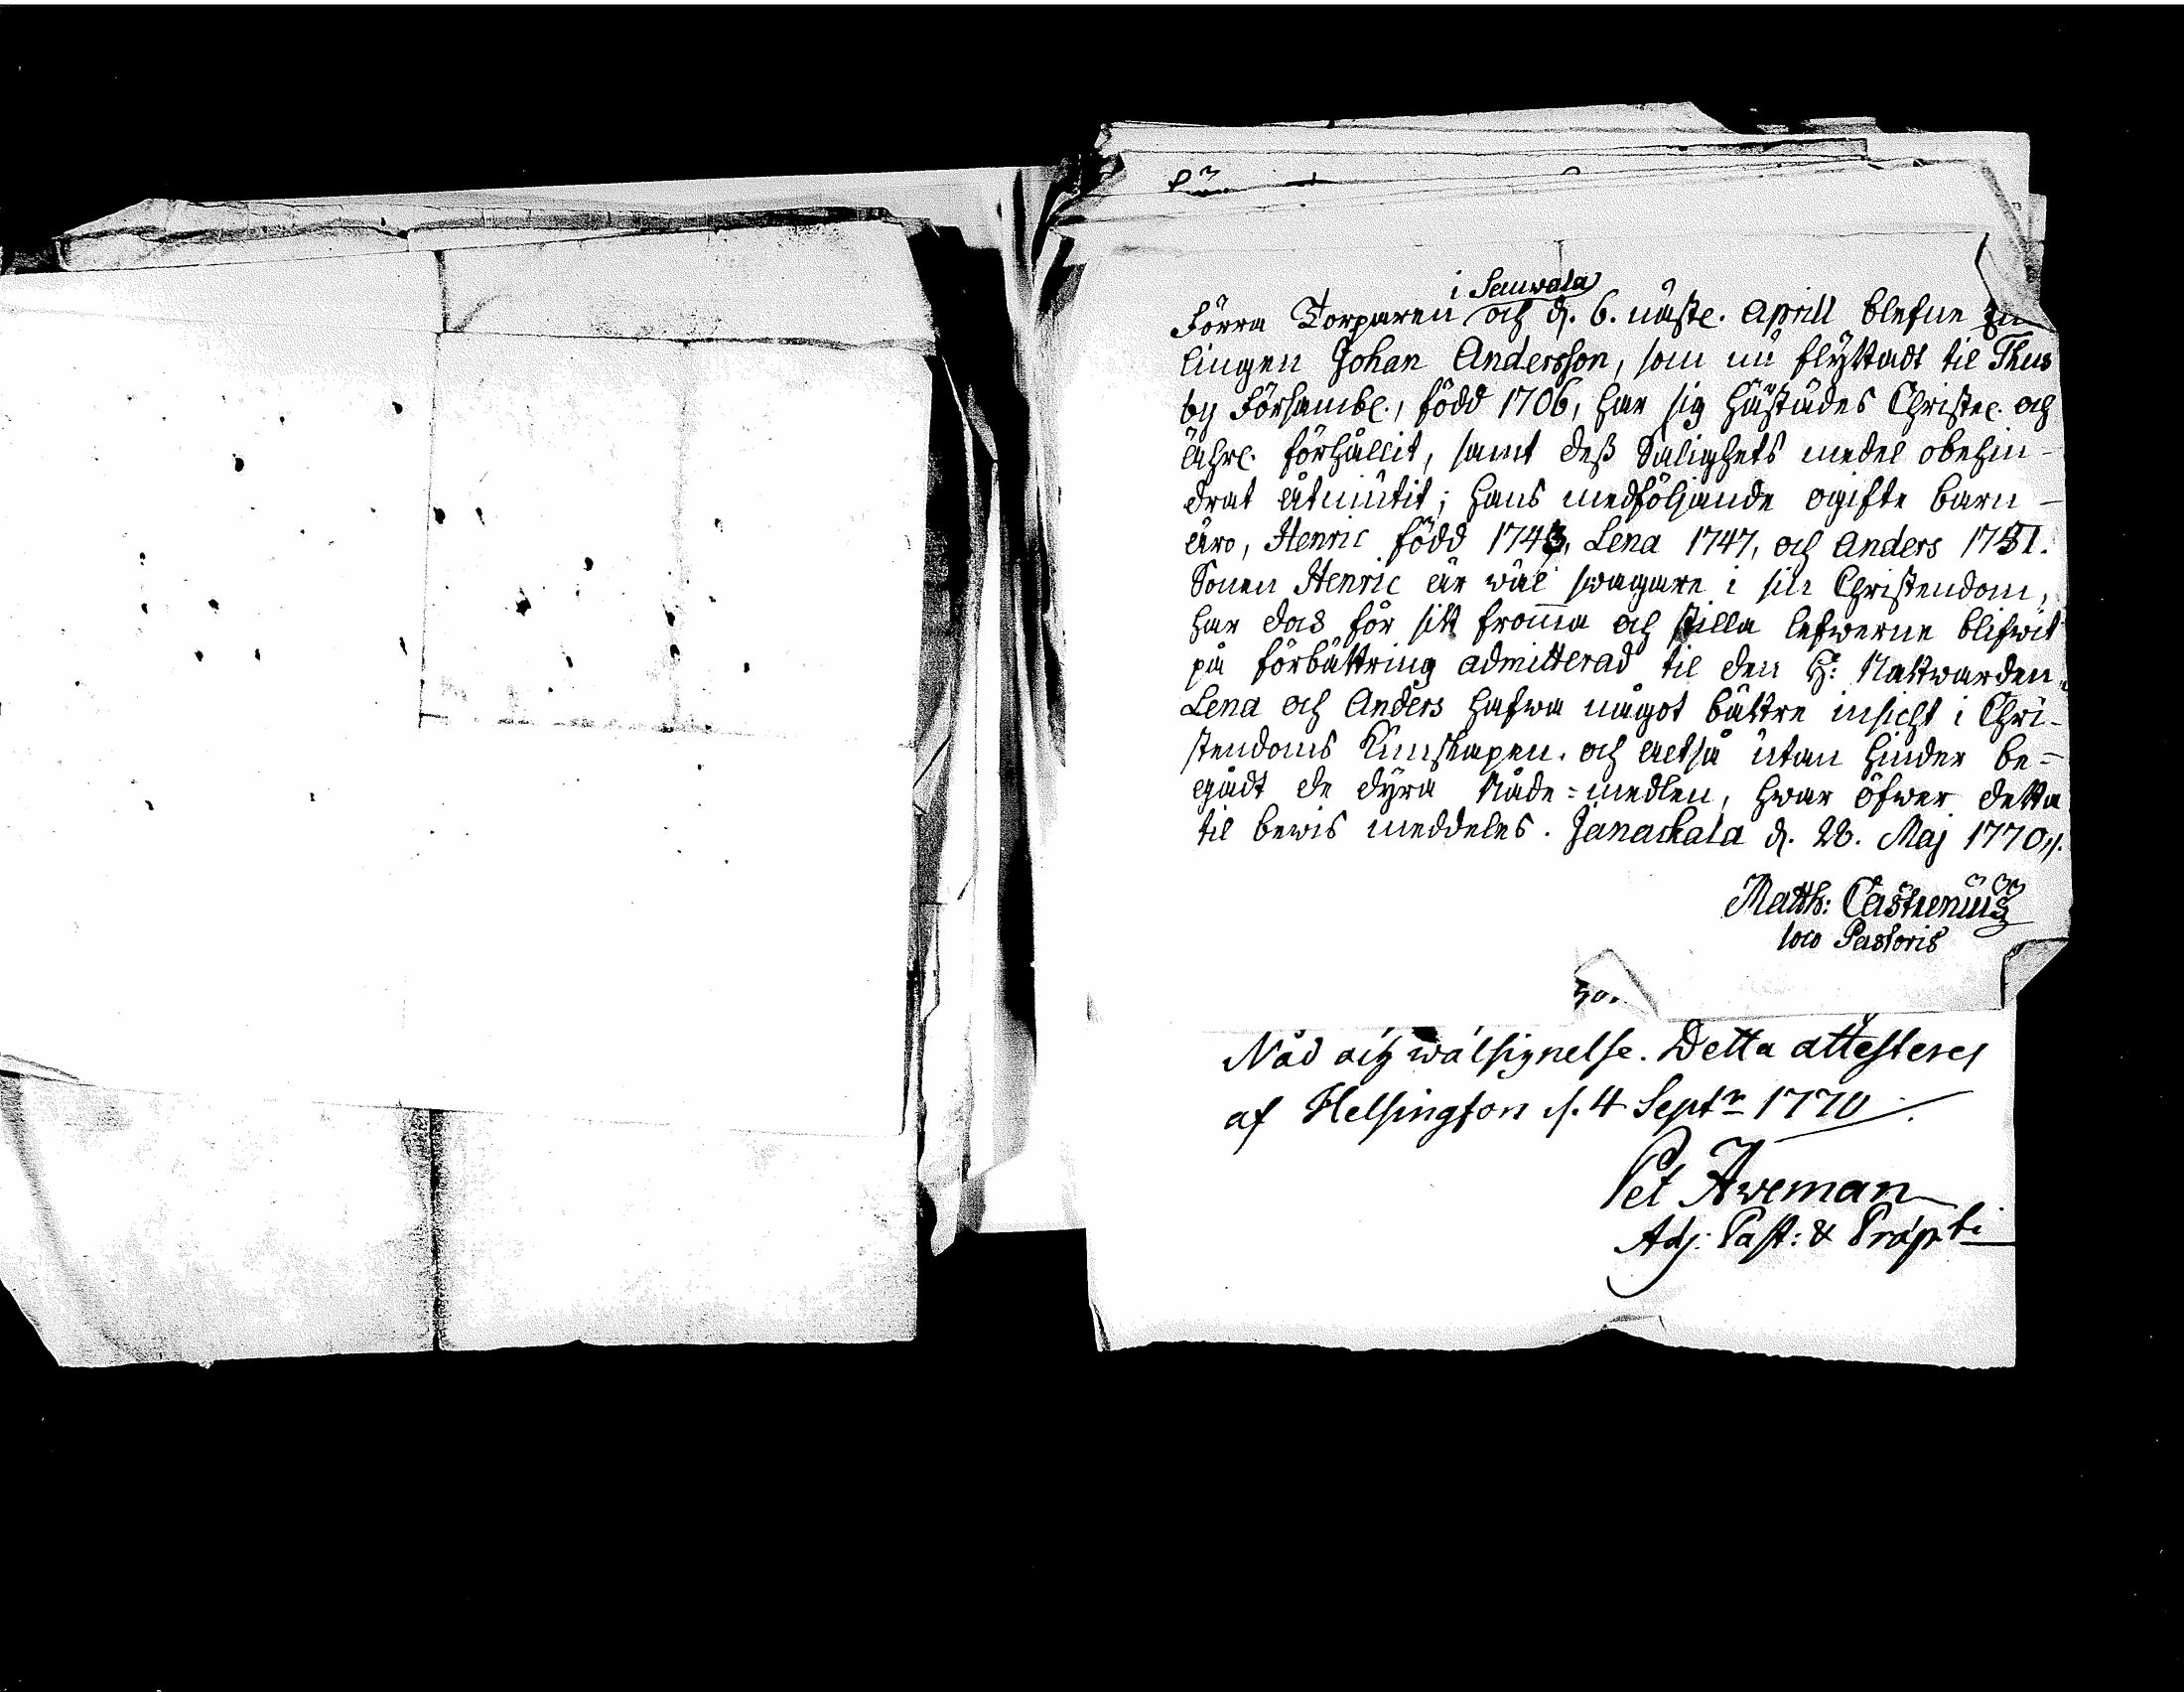 i Sauwala
Förra Torparen och d. 6. nästl. Aprill blefne Enk
lingen Johan Andersson, som nu flyttadt til Thus
by Försambl., född 1706, har sig härstädes Christel. och
ährl. förhållit, samt dess Salighets medel obehin-
drat åtniutit; hans medföljande ogifte barn -
äro, Henric född 1743, Lena 1747, och Anders 1751.
Sonen Henric är wäl swagare i sin Christendom,
har doch för sitt fromma och stilla lefwerne blifwit
på förbättring admitterad til den H: Nattwarden.
Lena och Anders hafwa något bättre insicht i Chri-
stendoms Kunskapen. och altså utan hinder be-
gådt de dyra Nåde-medlen, hwar öfwer detta
til bewis meddeles. Janackala d. 28. Maj 1770.
Matth: Castrenius
loco Pastoris
Nåd och wälsignelse. Detta attesteres
af Helsingfors d. 4 Septr 1770
Pet Aweman
Adj: Past: & Præpti